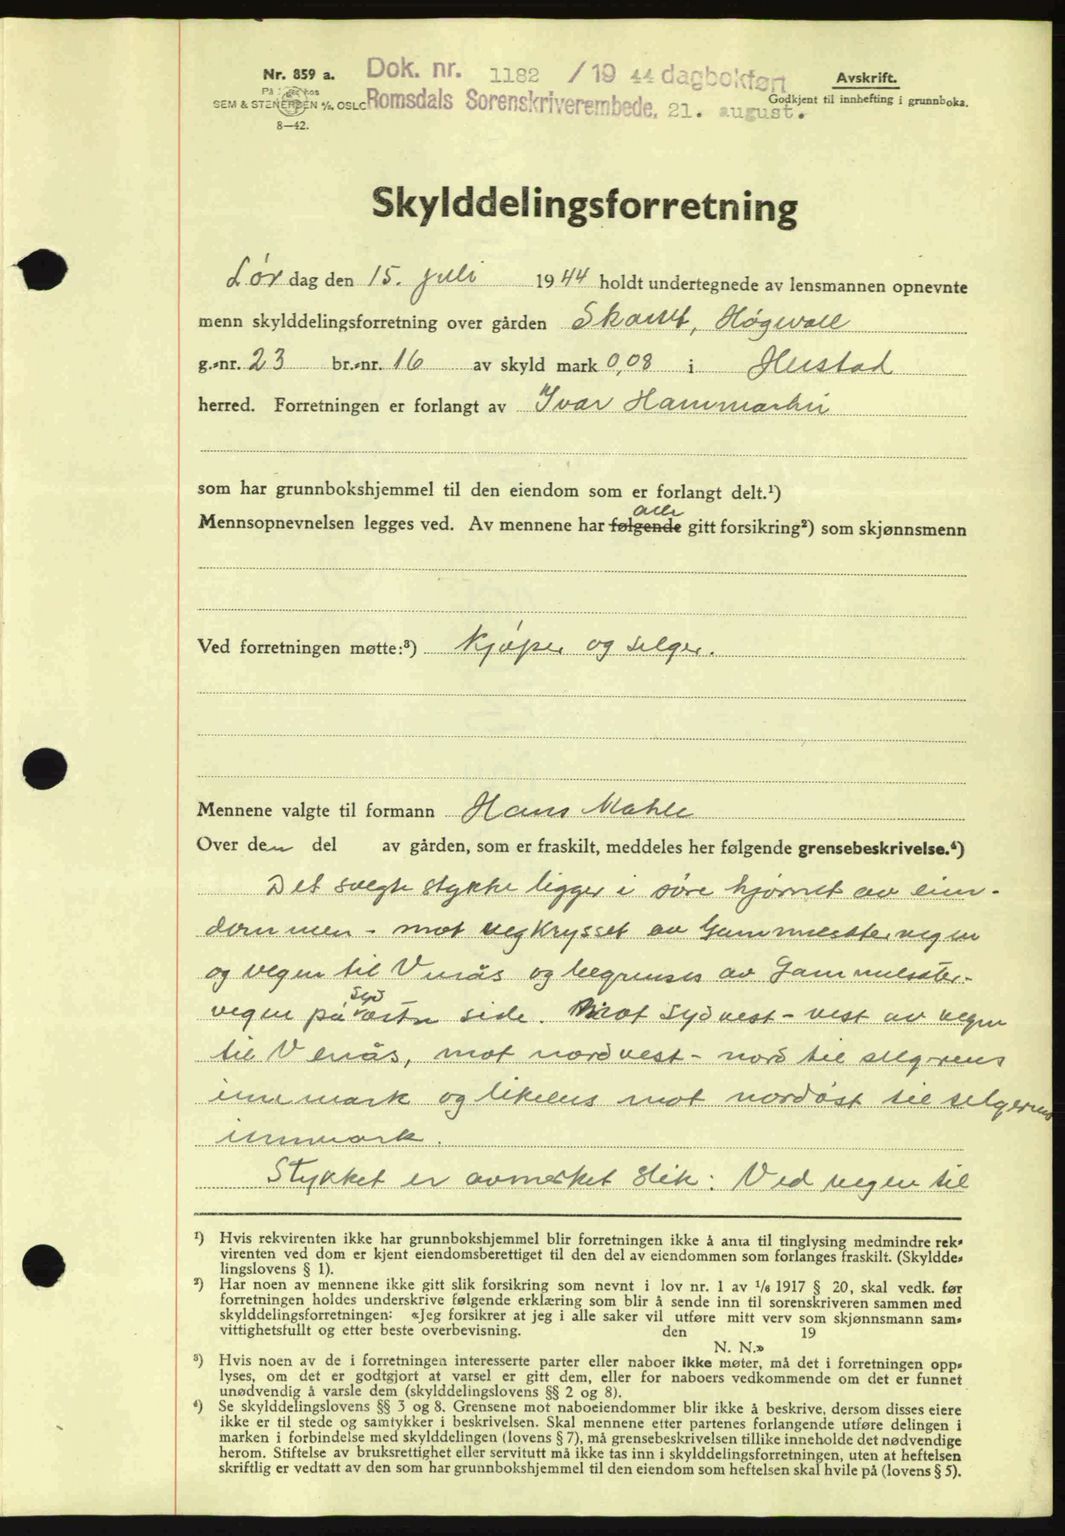 Nr. 859 a.
Dok. nr. 1182 /19 44 dagbokført
Avskrift.
SEM & STENERSEN A/S. OSLO
Romsdals Sorenskriverembede, 21. august.
Godkjent til innhefting i grunnboka.
8—42.
Skylddelingsforretning
Lør dag den 15. juli 1944 holdt undertegnede av lensmannen opnevnte
menn skylddelingsforretning over gården Skaret, Høgvoll
g.-nr. 23 br.-nr. 16 av skyld mark 0,08 i Hustad
herred. Forretningen er forlangt av Ivar
som har grunnbokshjemmel til den eiendom som er forlangt delt.¹)
alle
Mennsopnevnelsen legges ved. Av mennene har følgende gitt forsikring²) som skjønnsmenn
Ved forretningen møtte:³) Kjøper og selger.
Mennene valgte til formann Hans Mahle
Over den del av gården, som er fraskilt, meddeles her følgende grensebeskrivelse.⁴)
Det solgte stykke ligger i søre hjørnet av eien-
dommen - mot vegkrysset av vegen
og vegen til og begrenses av
syd
vegen på østre side. Mot sydvest - vest av vegen
til, mot nordvest - nord til selgerens
innmark og likeens mot nordøst til selgerens
innmark.
Stykket er avmerket slik: Ved vegen til
¹) Hvis rekvirenten ikke har grunnbokshjemmel blir forretningen ikke å anta til tinglysing medmindre rek-
virenten ved dom er kjent eiendomsberettiget til den del av eiendommen som forlanges fraskilt. (Skyldde-
lingslovens § 1).
²) Har noen av mennene ikke gitt slik forsikring som nevnt i lov nr. 1 av ¹/₆ 1917 § 20, skal vedk. før
forretningen holdes underskrive følgende erklæring som blir å sende inn til sorenskriveren sammen med
skylddelingsforretningen: «Jeg forsikrer at jeg i alle saker vil utføre mitt verv som skjønnsmann sam-
vittighetsfullt og etter beste overbevisning. den 19
N. N.»
³) Hvis noen av de i forretningen interesserte parter eller naboer ikke møter, må det i forretningen opp-
lyses, om det er godtgjort at varsel er gitt dem, eller for naboers vedkommende om det er funnet
unødvendig å varsle dem (skylddelingslovens §§ 2 og 8).
⁴) Se skylddelingslovens §§ 3 og 8. Grensene mot naboeiendommer blir ikke å beskrive, dersom disses eiere
ikke er til stede og samtykker i beskrivelsen. Skal mennene etter partenes forlangende utføre delingen i
marken i forbindelse med skylddelingen (lovens § 7), må grensebeskrivelsen tillike inneholde det nødvendige
herom. Stiftelse av bruksrettighet eller servitutt må ikke tas inn i skylddelingsforretningen, uten at heftelsen
skriftlig er vedtatt av den som har grunnbokshjemmel til den eiendom som heftelsen skal hvile på (lovens § 5).